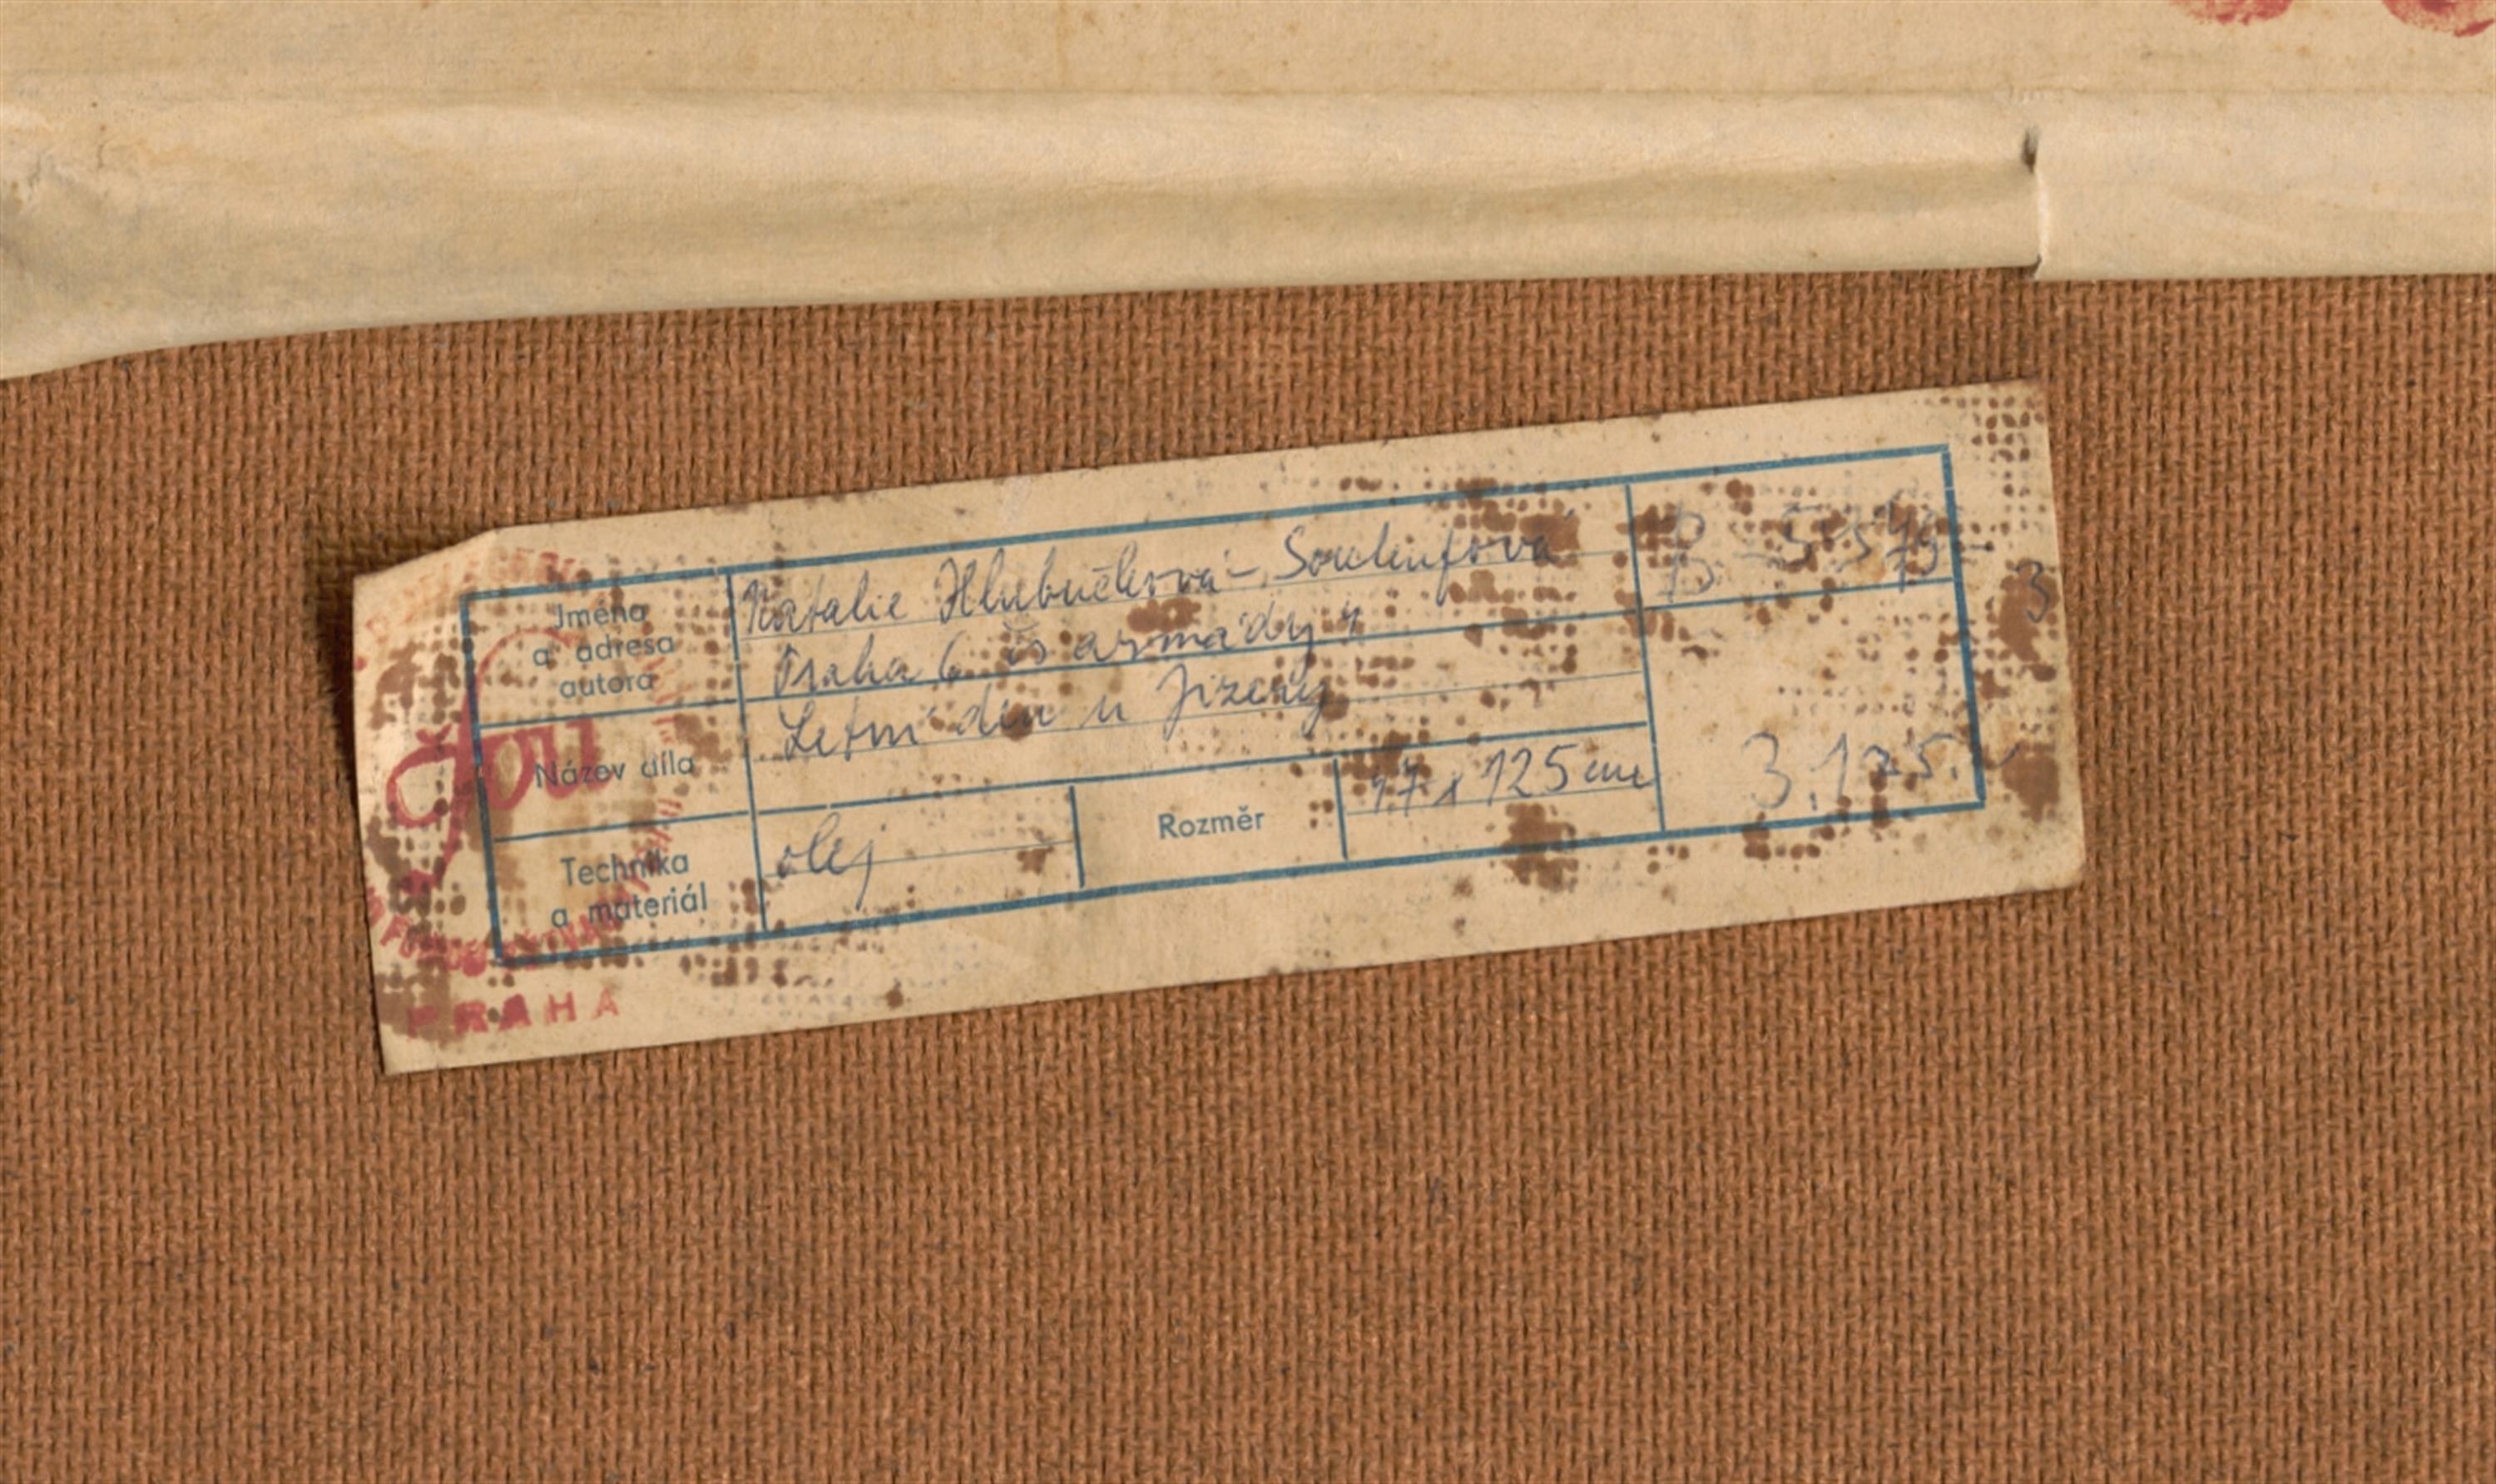 Jméno
a adresa
autora
Natalie Hlubučková - Soukupová
Praha 6 čs armády 4
Název díla
Letní den u Jizery
Technika
a materiál
olej
Rozměr
77 x 125 cm
3.125.-
čfvu
PRAHA